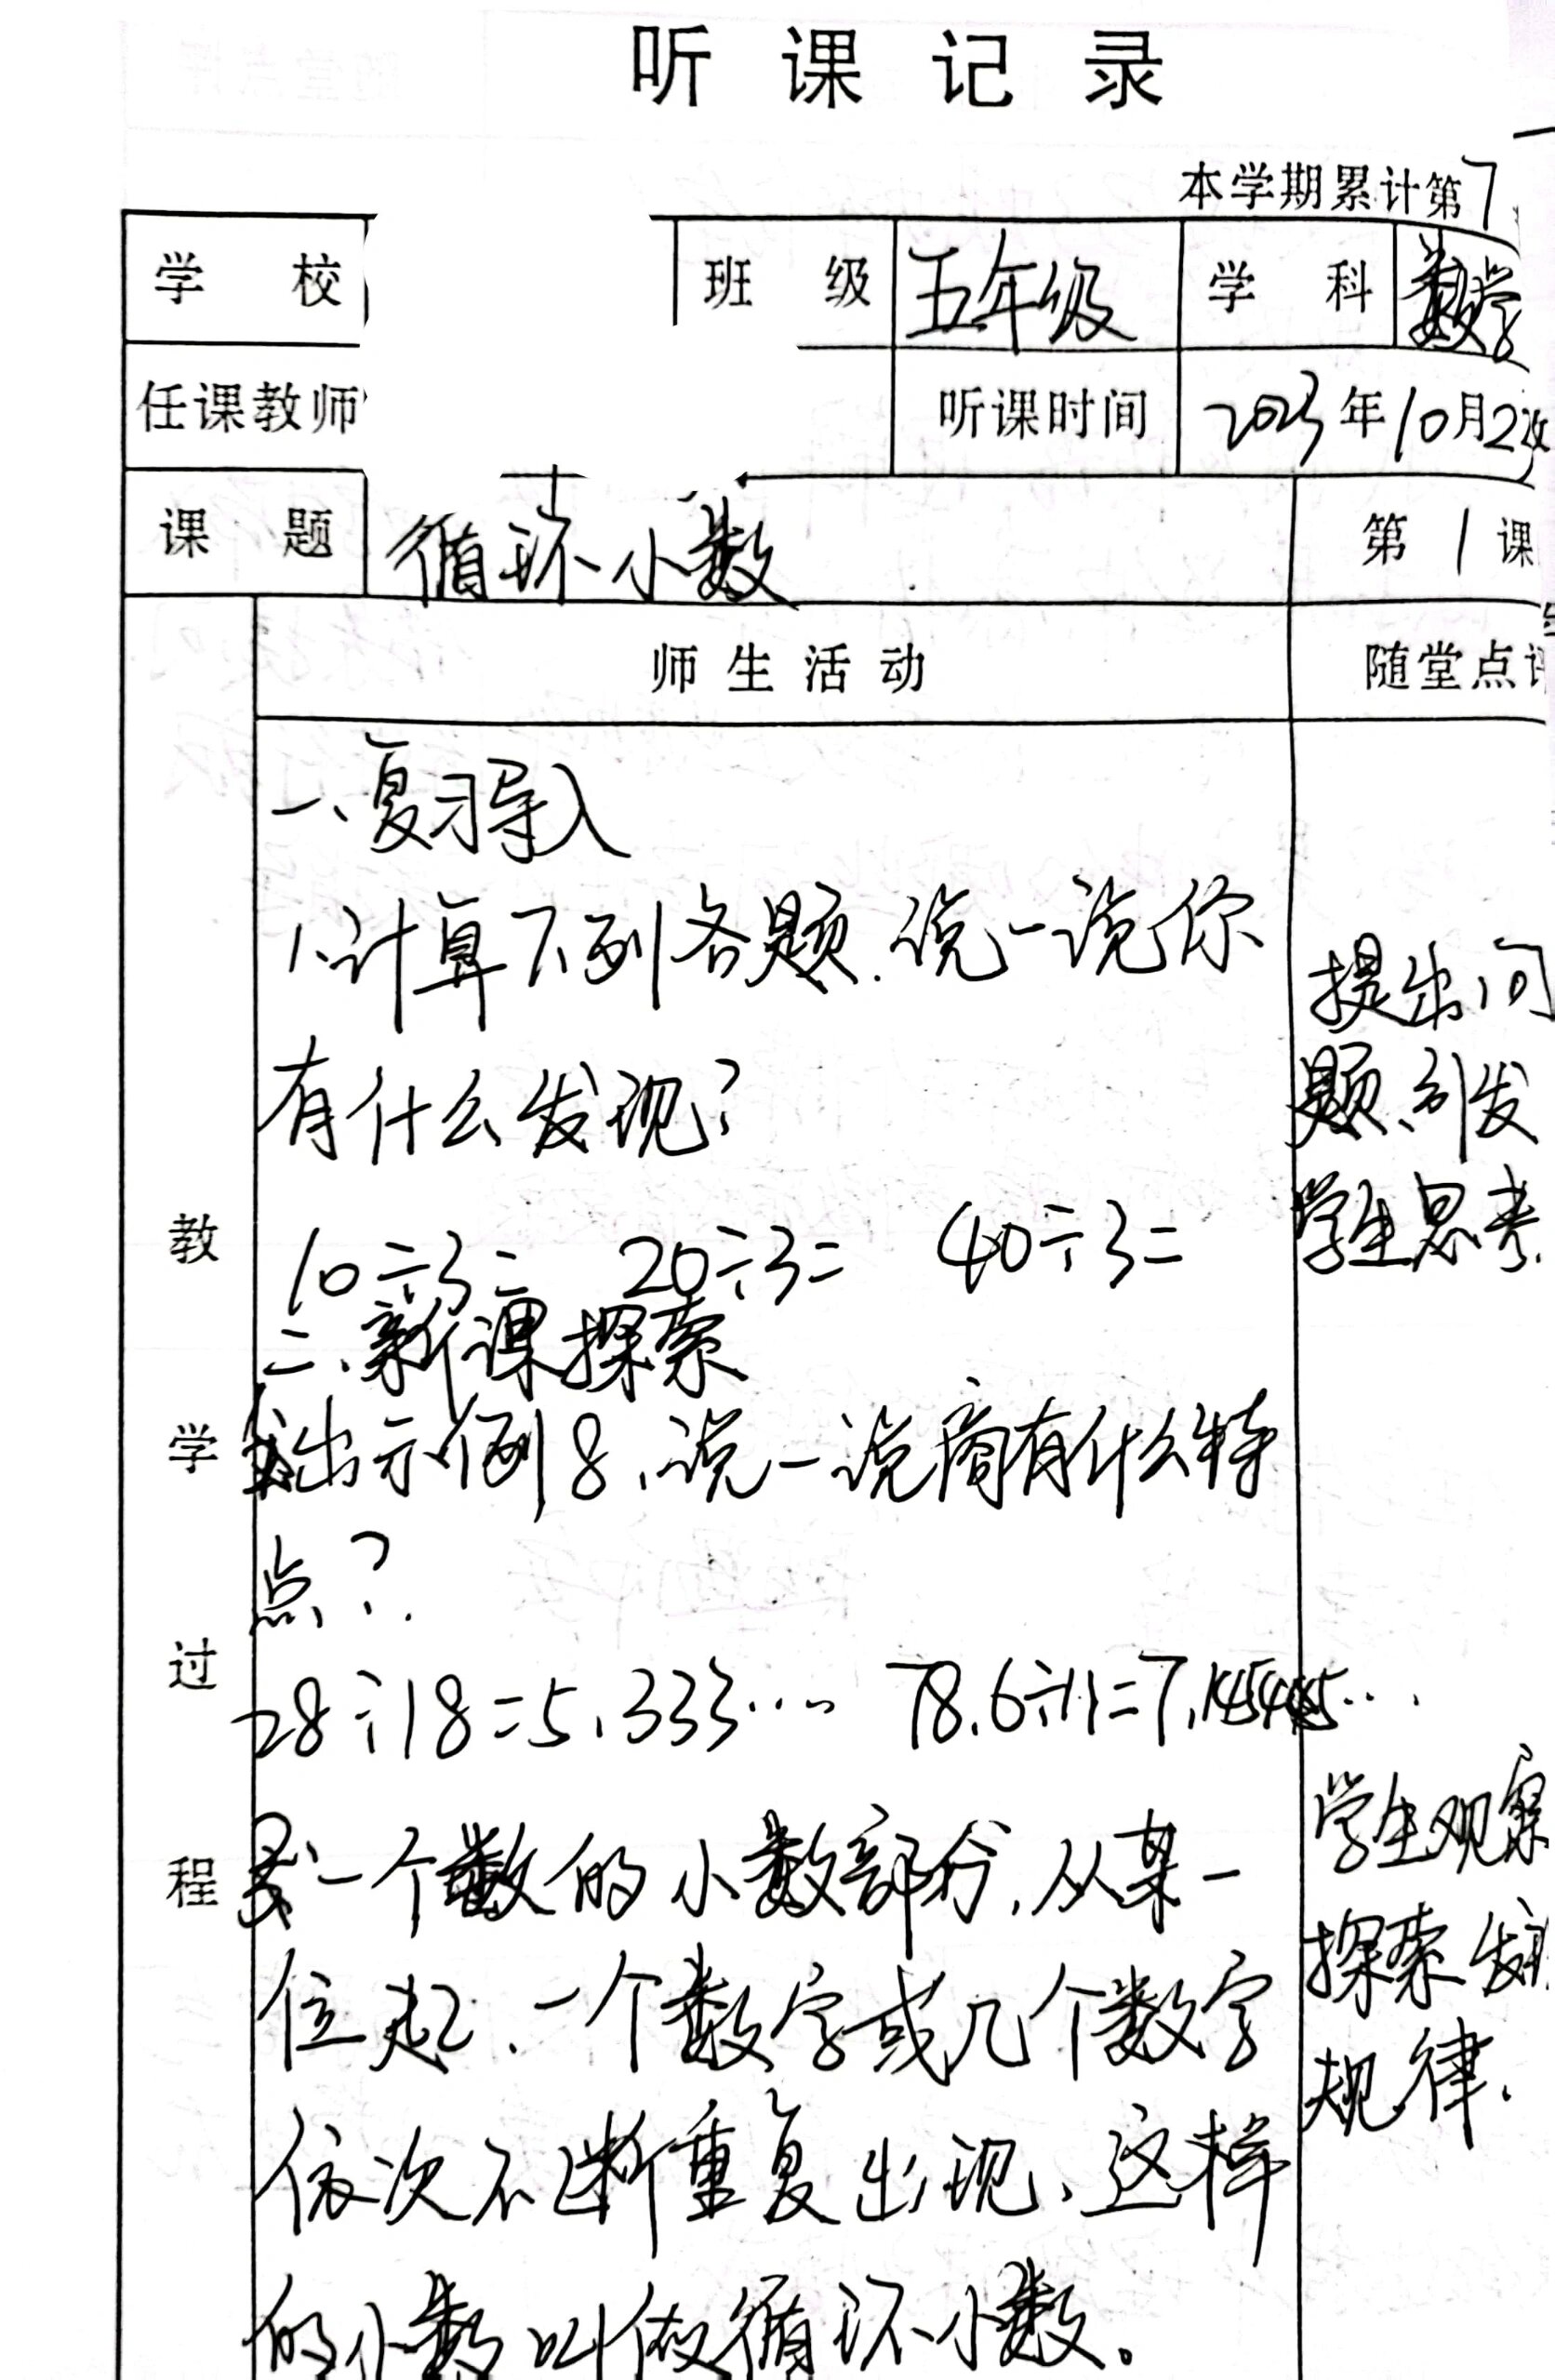 听课记录
本学期累计第7
学校 班级 五年级 学科 数学
任课教师 听课时间 2023年10月2
课题 循环小数 第1课
师生活动 随堂点评
教学过程
一、复习导入
1、计算下列各题.说一说你
有什么发现?
10÷3= 20÷3= 40÷3=
二、新课探索
出示例8、说一说商有什么特
点?
28÷18=5.333… 78.6÷11=7.14545…
一个数的小数部分,从某一
位起、一个数字或几个数字
依次不断重复出现、这样
的小数叫做循环小数。
提出问
题、引发
学生思考.
学生观察
探索发现
规律.